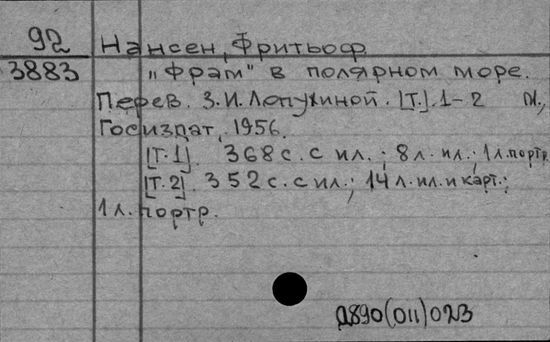 92 Нансен, Фритьоф
3883 „Фрам" в полярном море.
Перев. З.И. Лопухиной. [Т.]. 1-2 М.,
Госиздат, 1956.
[Т.1]. 368 с. с ил.; 8 л. ил.; 1 л. портр,
[Т.2]. 352 с. с ил.; 14 л. ил. и карт.;
1 л. портр.
Д890(011)023